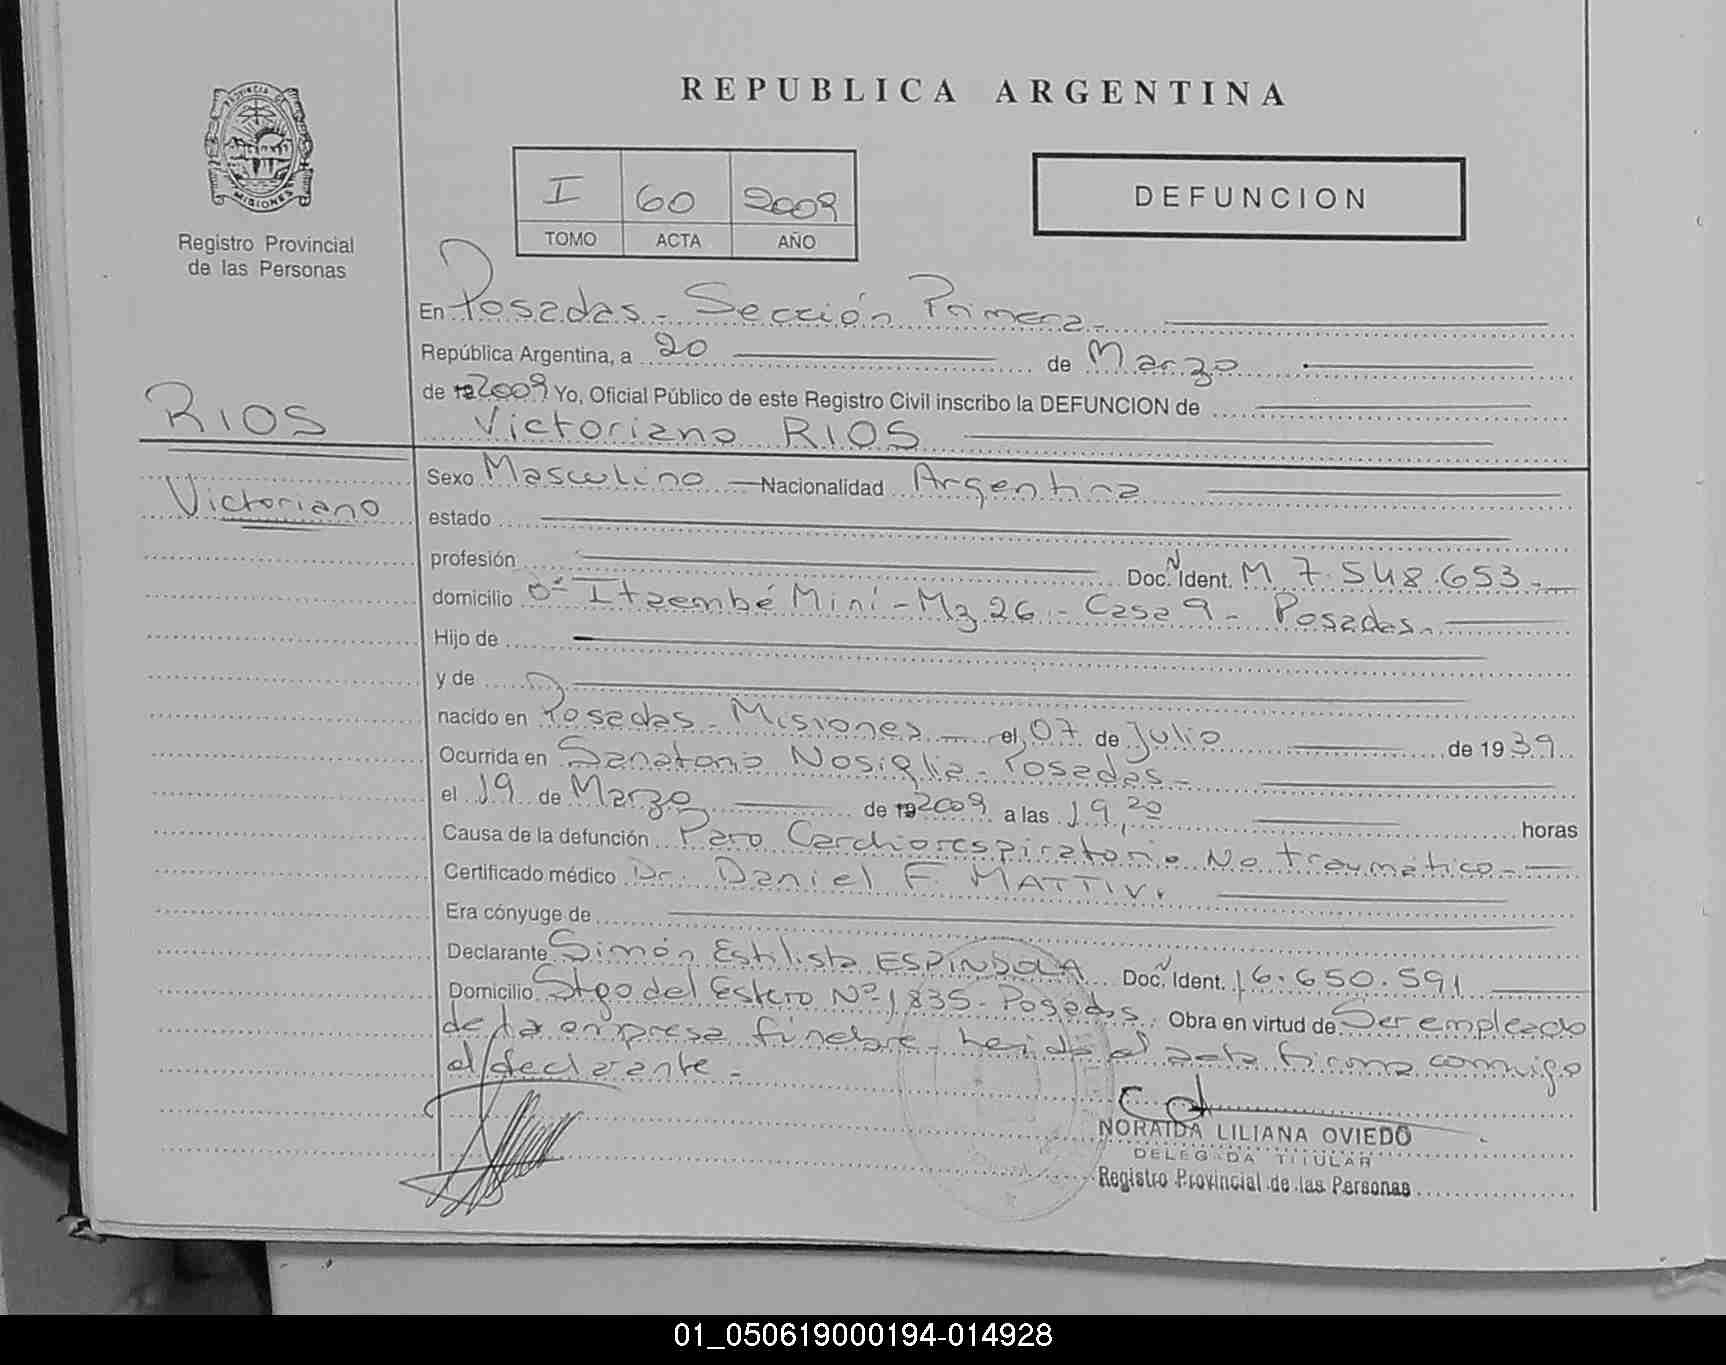 REPUBLICA ARGENTINA
PROVINCIA DE
MISIONES
Registro Provincial
de las Personas
I 60 2009
TOMO ACTA AÑO
DEFUNCION
En Posadas - Sección Primera -
República Argentina, a 20 de Marzo
de 2009 Yo, Oficial Público de este Registro Civil inscribo la DEFUNCION de
RIOS
Victoriano RIOS
Victoriano
Sexo Masculino Nacionalidad Argentina
estado
profesión Doc. N Ident. M 7.548.653.-
domicilio Itaembé Miní - Mz 26 - Casa 9 - Posadas.
Hijo de
y de
nacido en Posadas - Misiones el 07 de Julio de 1939
Ocurrida en Sanatorio Nosiglia - Posadas -
el 19 de Marzo de 2009 a las 19,20 horas
Causa de la defunción Paro Cardiorespiratorio No traumático -
Certificado médico Dr. Daniel F. MATTIV.
Era cónyuge de
Declarante Simón Estilista ESPINDOLA Doc. N Ident. 16.650.591
Domicilio Stgo del Estero Nº 1835 - Posadas. Obra en virtud de Ser empleado
de la empresa fúnebre - leída el acta firma conmigo
el declarante -
NORAIDA LILIANA OVIEDO
DELEGADA TITULAR
Registro Provincial de las Personas
01_050619000194-014928